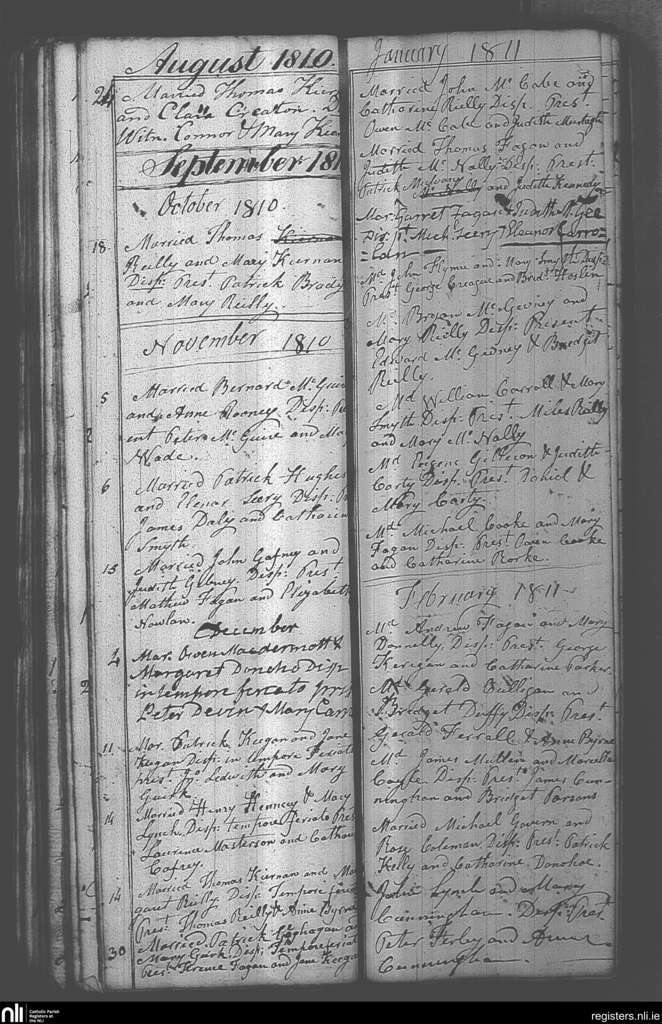 August 1810
24 Married Thomas
and Clara Creaton.
Witn. Connor & Mary
September
October 1810.
18 Married Thomas Kiernan
Reilly and Mary Kiernan
Disp: Prest. Patrick Brady
and Mary Reilly.
November 1810
5 Married Bernard Mc
and Anne Rooney Disp:
ent Peter Mc Guire and
Wade.
6 Married Patrick Hughes
and Elenar Leery Disp:
James Daly and
Smyth.
13 Married John Gafney and
Judith Gibney Disp: Prest.
Mathew Fagan and Elizabeth
Nowlan.
December
4 Mar. Owen Macdermott &
Margaret Doncho Disp
in tempore feriato
Peter Devin & Mary
11 Mar. Patrick Keegan and Jane
Keegan Disp: in tempore
prest. Jno. Ledwith and Mary
14 Married Henry Hennecy & Mary
Lynch Disp: tempore feriato
Laurence Masterson and
Cafrey.
14 Married Thomas Kiernan and
garet Reilly Disp: Tempore
prest. Thomas Reilly & Anne
30 Married Patrick
Mary Disp:
Prest. Terence Fagan and Jane
January 1811
Married John Mc Cabe and
Catharine Reilly Disp. Prest.
Owen Mc Cabe and Judith
Married Thomas Fagan and
Judith Mc Nally Disp: Prest.
Patrick and Judith Kennedy
Mar. Garret Fagan & Judith
Dis: pt. Mich. Leery & Eleanor
Md. John Flynn and Mary Smyth Disp:
Prest. George Creague and Bridt. Heslin
Md. Bryan Mc Gevney and
Mary Reilly Disp: Present
Edward Mc Gevney & Bridget
Reilly.
Md. William Carroll & Mary
Smyth Disp: Prest. Miles Reilly
and Mary Mc Nally
Md. & Judith
Carty Disp: Prest. Daniel &
Mary Carty
Md. Michael Cooke and Mary
Fagan Disp: Prest. Owen Cooke
and Catharine Rorke.
February 1811
Md. Andrew Fagan and Mary
Donnelly, Disp: Prest. George
Kerrgan and Catharine
Md. Gerald and
Bridget Duffy Disp: Prest.
Gerald Ferrall & Anne Byrne
Md. James Mullen and Marcella
Coyle Disp: Prest. James Cun-
ningham and Bridget Parsons
Married Michael Gavern and
Rose Coleman Disp: Prest. Patrick
Kelly and Catharine Donohoe.
Jales Lynch and Mary
Cunningham. Disp: Prest.
Peter Ferley and Anne
Cunningham.
nli Catholic Parish
Registers at
the NLI
registers.nli.ie